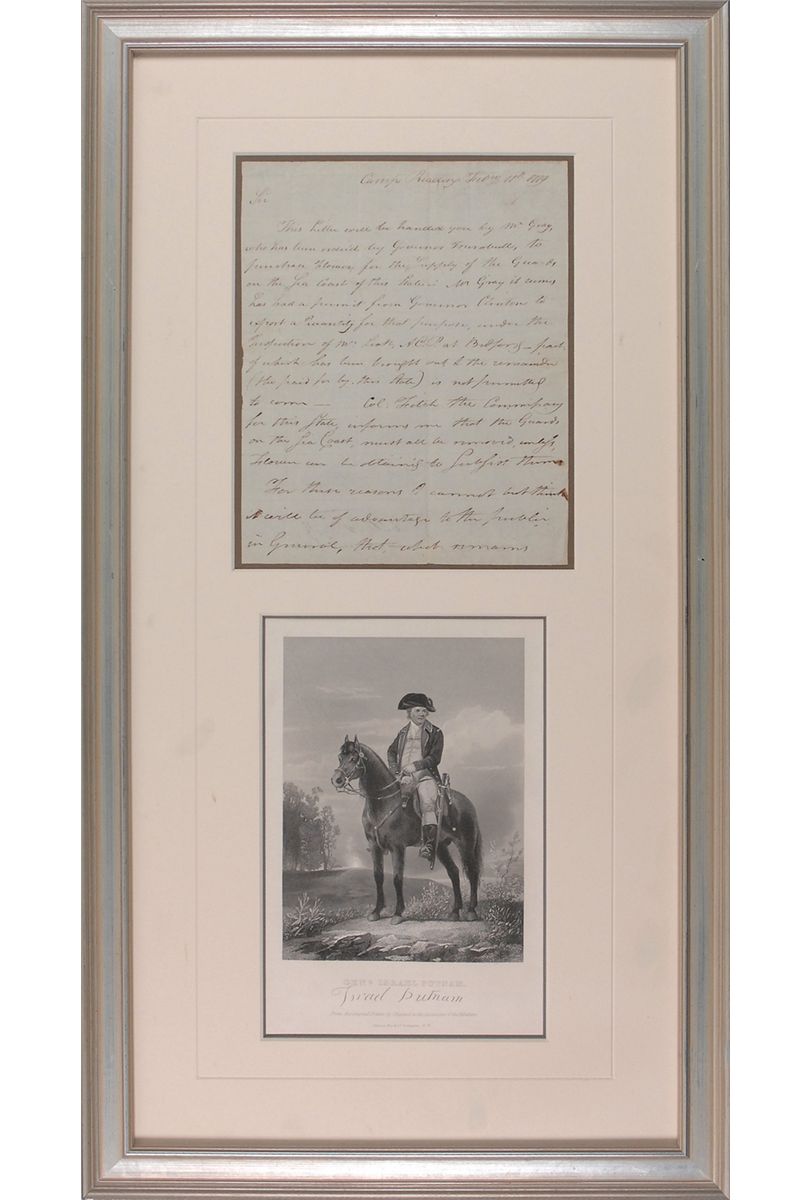 Camp Reading Feb.ry 11th 1779
Sir
This Letter will be handed you by Mr Gray,
who has been ordred by Governor Trumbull, to
purchase Flower for the Supply of the Guards
on the Sea Coast of this State: Mr Gray it seems
has had a permit from Governor Clinton to
export a Quantity for that purpose, under the
Inspection of Mr A.C.P. at Bedford - part
of which has been brought out & the remainder
(tho paid for by this State) is not permitted
to come — Col. Fitch the Commissary
for this State, informs me that the Guards
on the Sea Coast, must all be removed, unless
Flower can be obtaind to Subsist them
For these reasons I cannot but think
it will be of advantage to the public
in General, that what remains
GENL ISRAEL PUTNAM.
Israel Putnam